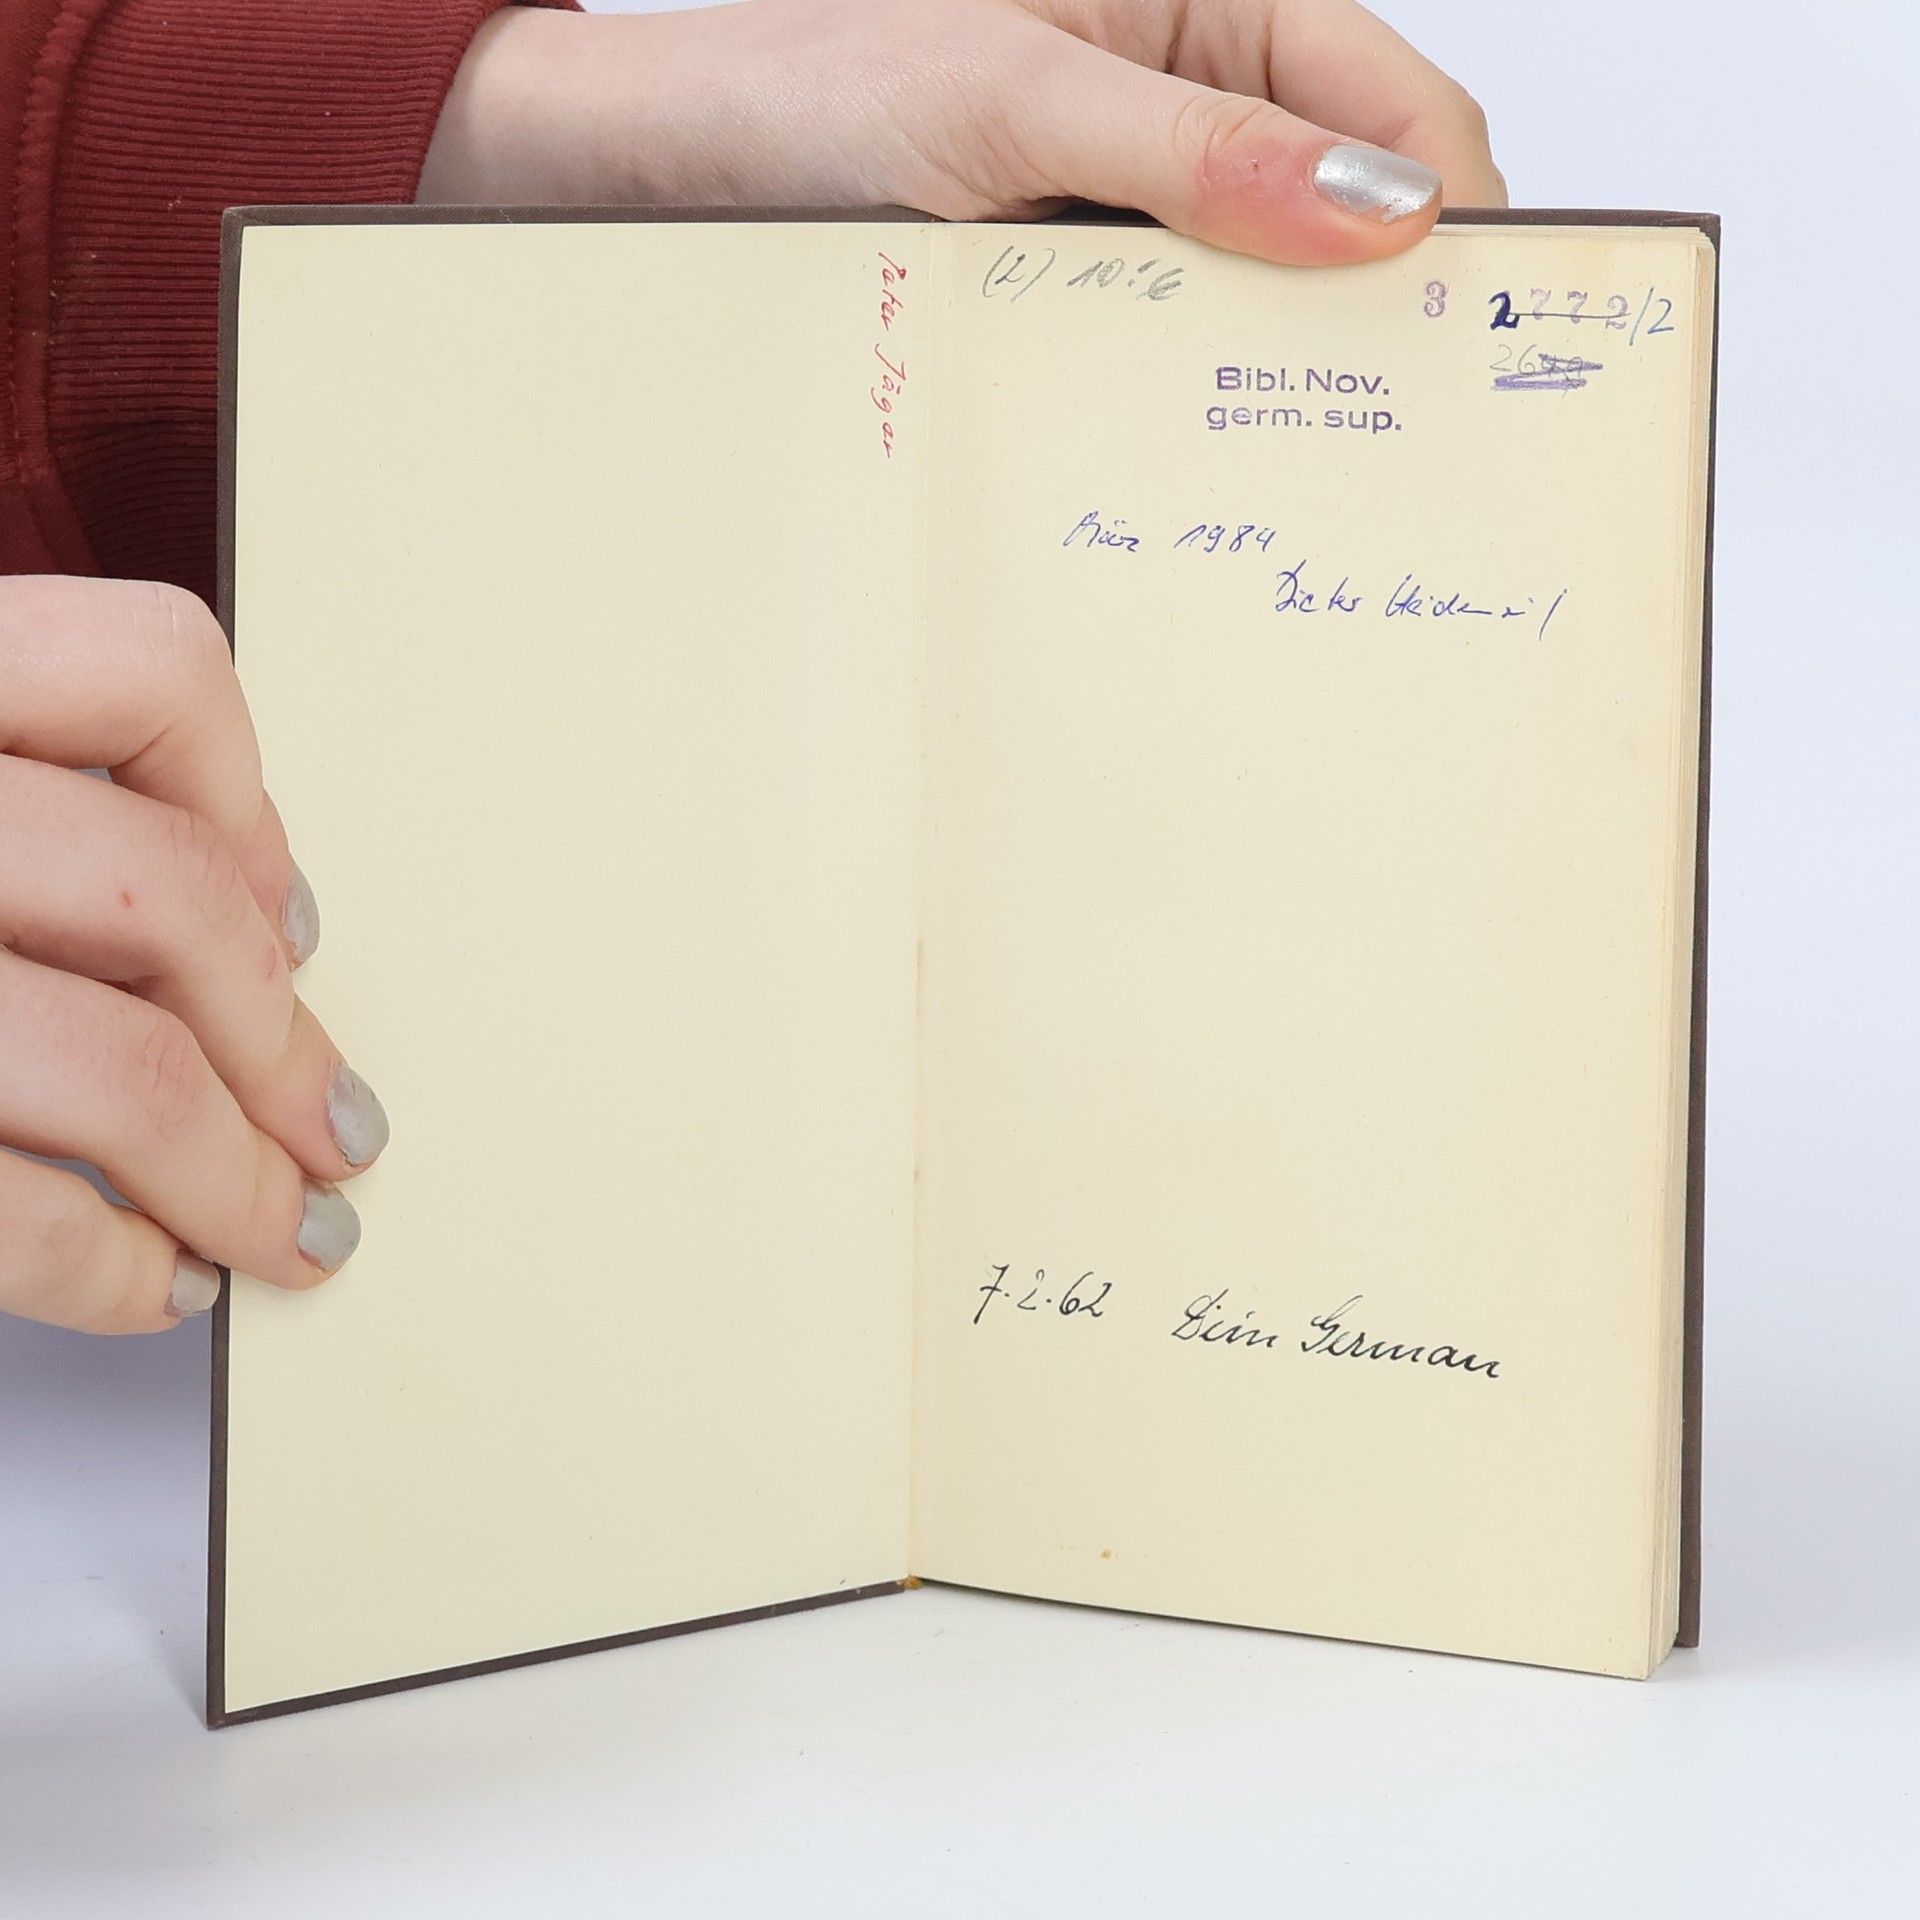 Pater Jäger
(2) 10:6
3 2772/2
Bibl. Nov.
germ. sup.
März 1984
Dieter
7.2.62 Dein German